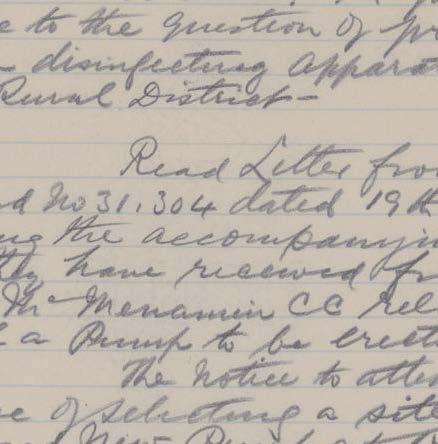 e to the question of pr
disinfecting Apparat
Rural District -
Read Letter from
nd No 31.304 dated 19th
ing the accompanying
they have received fr
Mc Menamin CC rel
a Pump to be erecte
The Notice to atten
ce of selecting a site